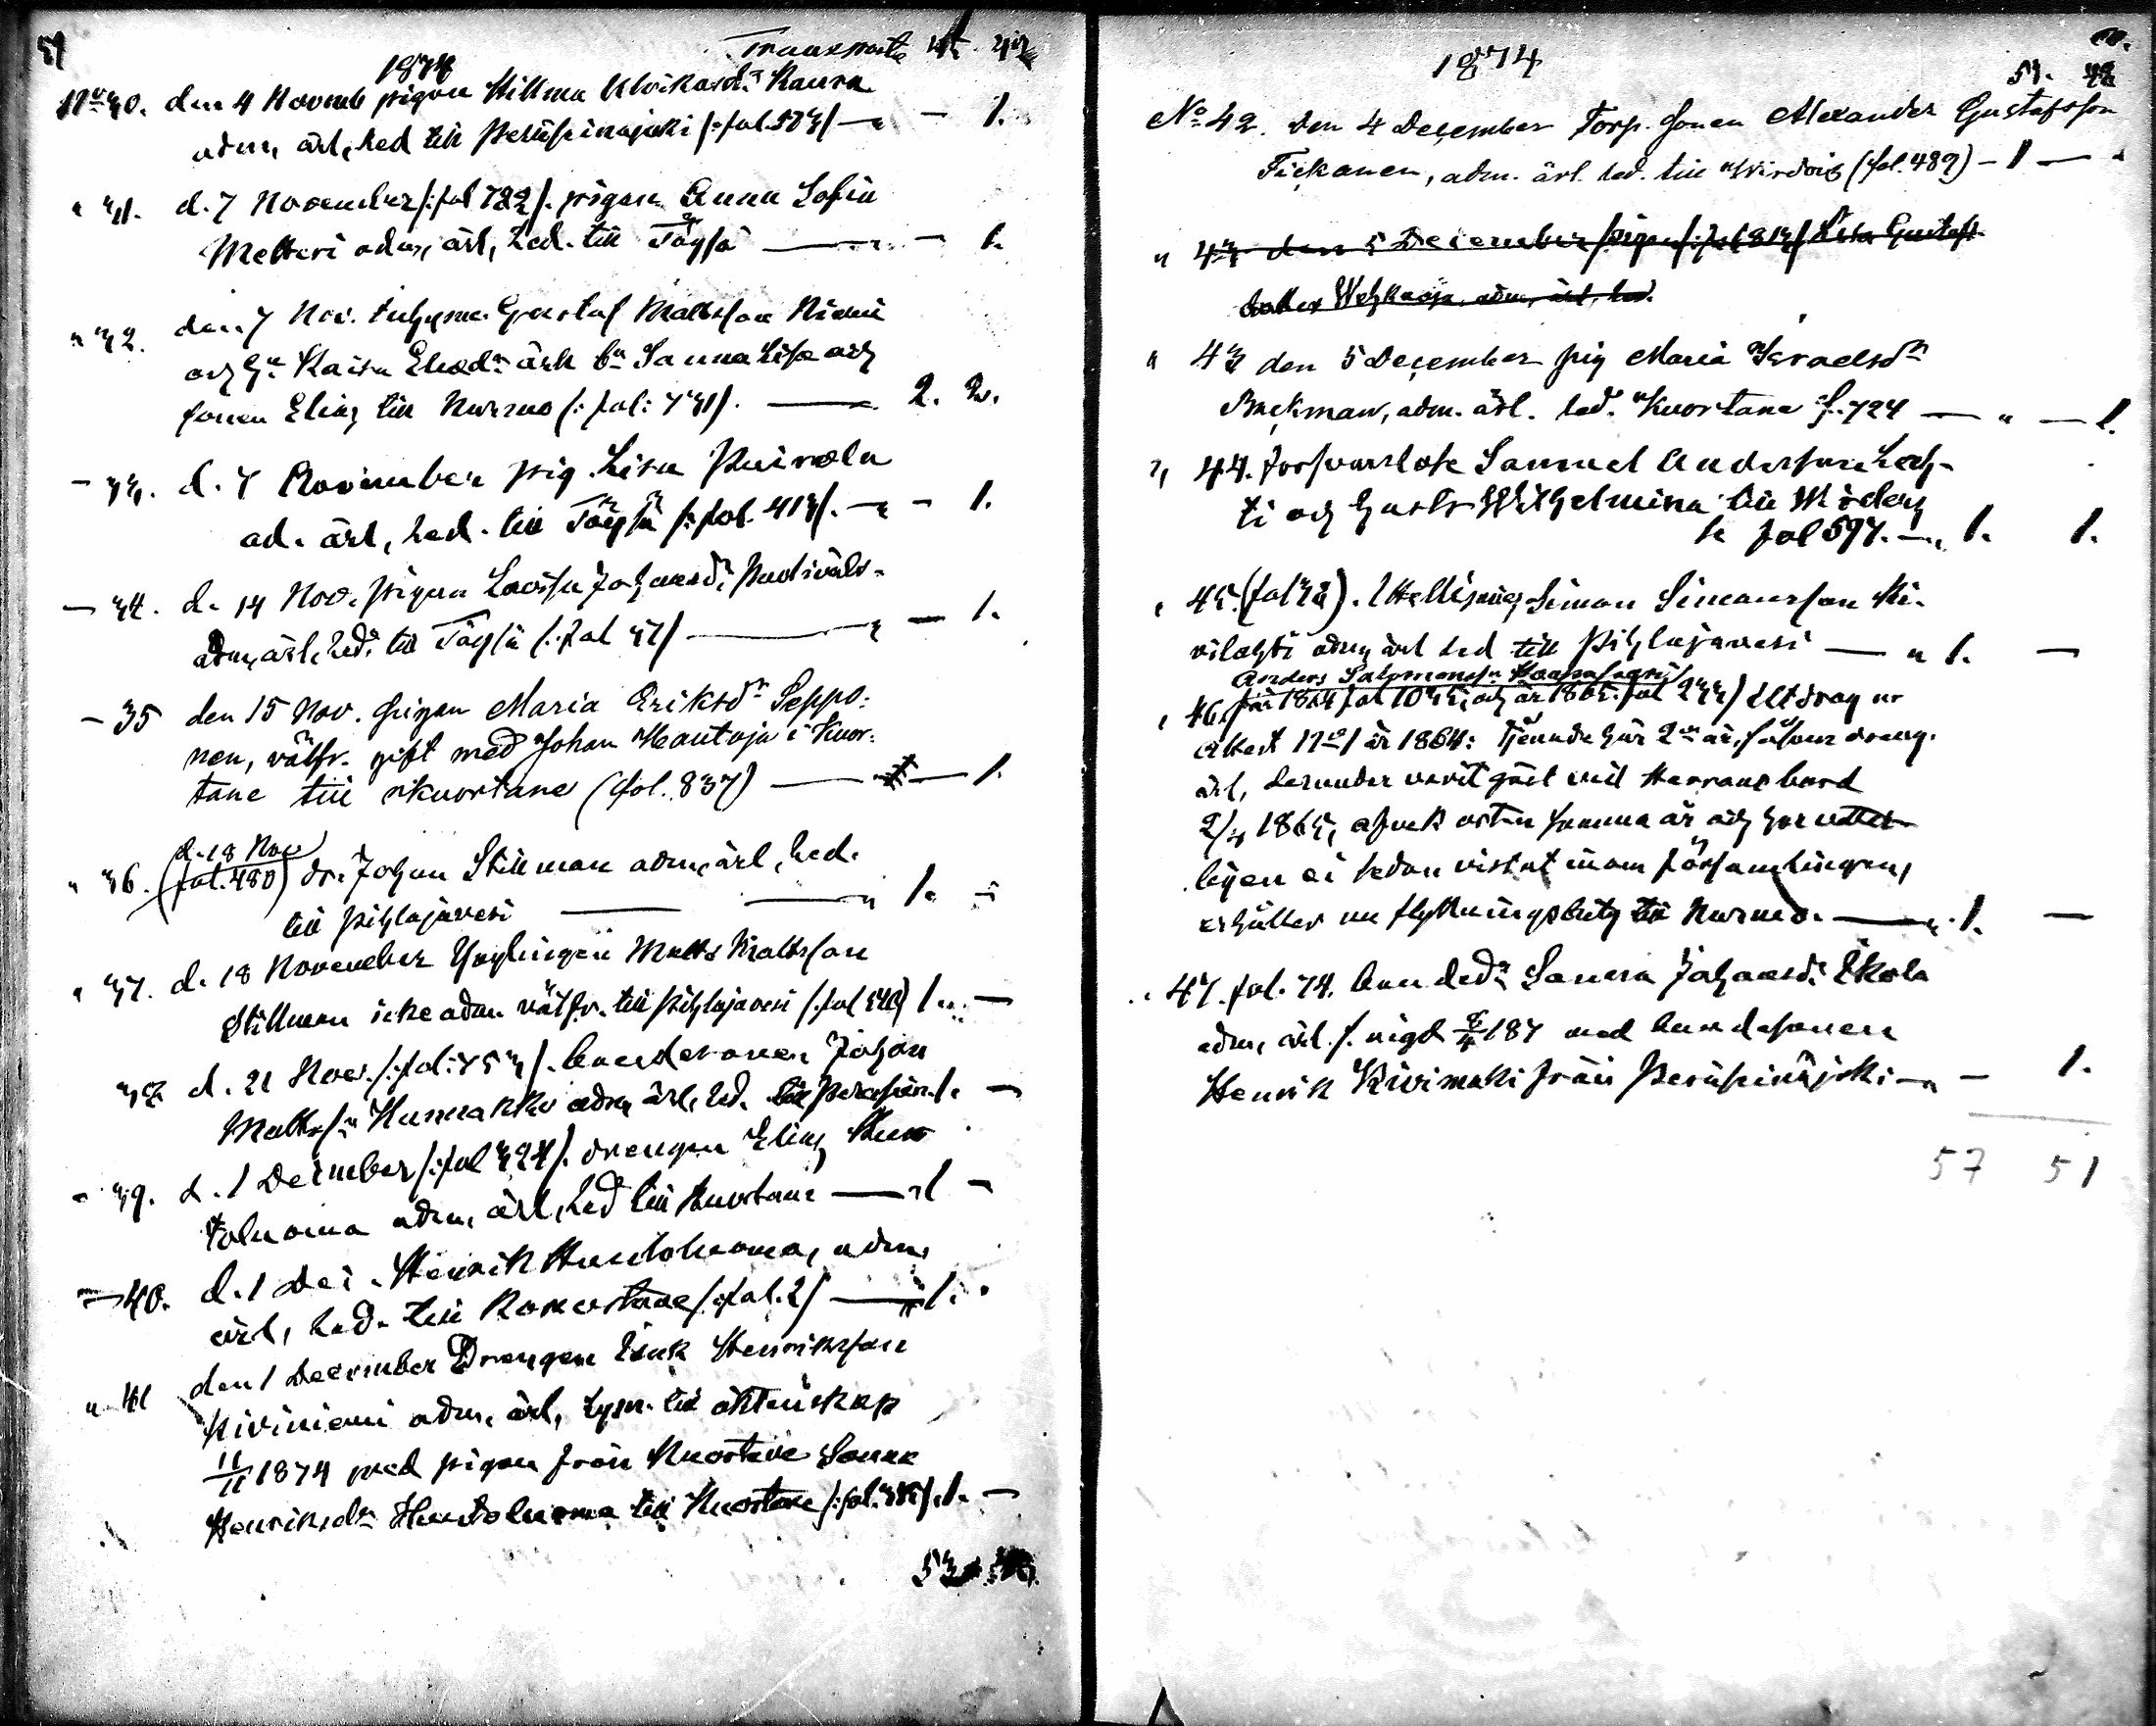 59
1874
Transport
No 30. den 4 Novemb pigan Hillma Ulrikasdr Kaura
adm, ärl, led till Peräseinäjoki /: fol 573/ — " — 1.
" 31. d. 7 November /: fol 782/. pigan Anna Sofia
Metteri adm, ärl, led. till Töysä — " — 1.
" 32. den 7 Nov. Gustaf Mattsson Niemi
och Hu Kaisa Eliasdr ärl bn Sanna Lisa och
sonen Elias till Nurmo /: fol: 731/. — 2. 2.
— 33. d. 7 November pig. Lisa Puirola
ad. ärl, led. till Töysä /: fol. 413/. — " — 1.
— 34. d. 14 Nov. pigan Lovisa Johansdr
adm, ärl, led. till Töysä /: fol 37/ — " — 1.
— 35 den 15 Nov. pigan Maria Eriksdr Seppo-
nen, välfr. gift med Johan Hautoja i Kuor-
tane till Kuortane (fol. 837) — 1.
d. 18 Nov
" 36. (fol. 480) dr. Johan Stillman adm, ärl, led.
till Pihlajavesi — " 1. —
" 37. d. 18 November Ynglingen Matts Mattsson
Stillman icke adm. välfr. till Pihlajavesi /: fol 540) 1. —
38 d. 21 Nov. /: fol: 753/. bondesonen Johan
Mattss. Hunnakko adm, ärl, led. till Peräsein. 1. —
" 39. d. 1 December /: fol 324/. drengen Elias Hun
toluoma adm, ärl, led till Kuortane — " 1 —
— 40. d. 1 Dec. Henrik Huntoluoma, adm,
ärl, led. till Kuortane /: fol. 2/ — " 1. "
" 41 den 1 December Drengen Isak Henriksson
Kiviniemi adm, ärl, lysn. till äktenskap
11/11 1874 med pigan från Kuortane Sanna
Henriksdr Huntoluoma till Kuortane /: fol. 1. —
1874
No 42. den 4 December Torp. sonen Alexander Gustafsson
Tickanen, adm. ärl. led. till Wirdois (fol. 489) — 1 — "
" 43 den 5 December pigan /: fol 813/ Lisa Gustafs
dotter adm, ärl, led.
" 43 den 5 December pig Maria Israelsdr
Backman, adm. ärl. led. Kuortane f. 724 — " — 1.
" 44. Försvarslöse Samuel Andersson Lah-
ti och hustr Wilhelmina till Wirdois
se fol 597. — " 1. 1.
" 45. (fol Simon Simonsson Ki-
vilahti adm, ärl led till Pihlajavesi — " 1. —
Anders Salomonss.
" 46. /: år 1864 fol och år 1865. fol 233/ Utdrag ur
Attest No 1 år 1864: Tjenade här 2ne år, såsom dreng.
ärl, derunder varit gäst vid Herrans bord
1865, afvek hösten samma år och har
ligen ei sedan vistats inom församlingen,
erhåller nu flyttningsbetyg till Nurmo. — " 1. —
" 47. fol. 74. bondedr Sanna Johansdr Ekola
adm, ärl. f. vigd 187 med bondesonen
Henrik Kivimäki från Peräseinäjoki — " — 1.
57 51